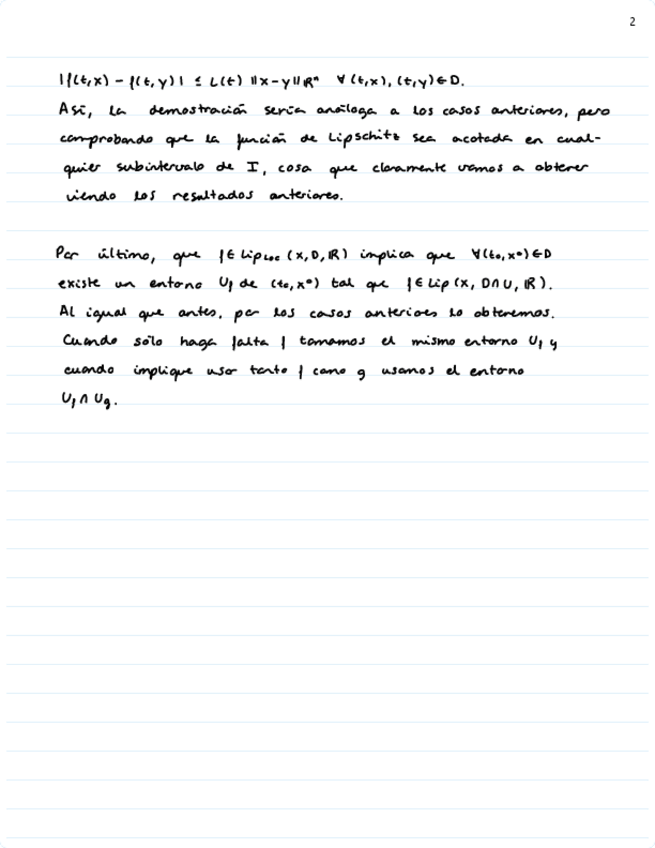 2
|f(t,x) - f(t,y)| ≤ L(t) ||x-y||ℝⁿ ∀ (t,x), (t,y) ∈ D.
Así, la demostración sería análoga a los casos anteriores, pero
comprobando que la función de Lipschitz sea acotada en cual-
quier subintervalo de I, cosa que claramente vamos a obtener
viendo los resultados anteriores.
Por último, que f ∈ Lip_loc (x, D, ℝ) implica que ∀(t₀, x⁰) ∈ D
existe un entorno U_f de (t₀, x⁰) tal que f ∈ Lip (x, D∩U, ℝ).
Al igual que antes, por los casos anteriores lo obtenemos.
Cuando sólo haga falta f tomamos el mismo entorno U_f y
cuando implique usar tanto f como g usamos el entorno
U_f ∩ U_g.